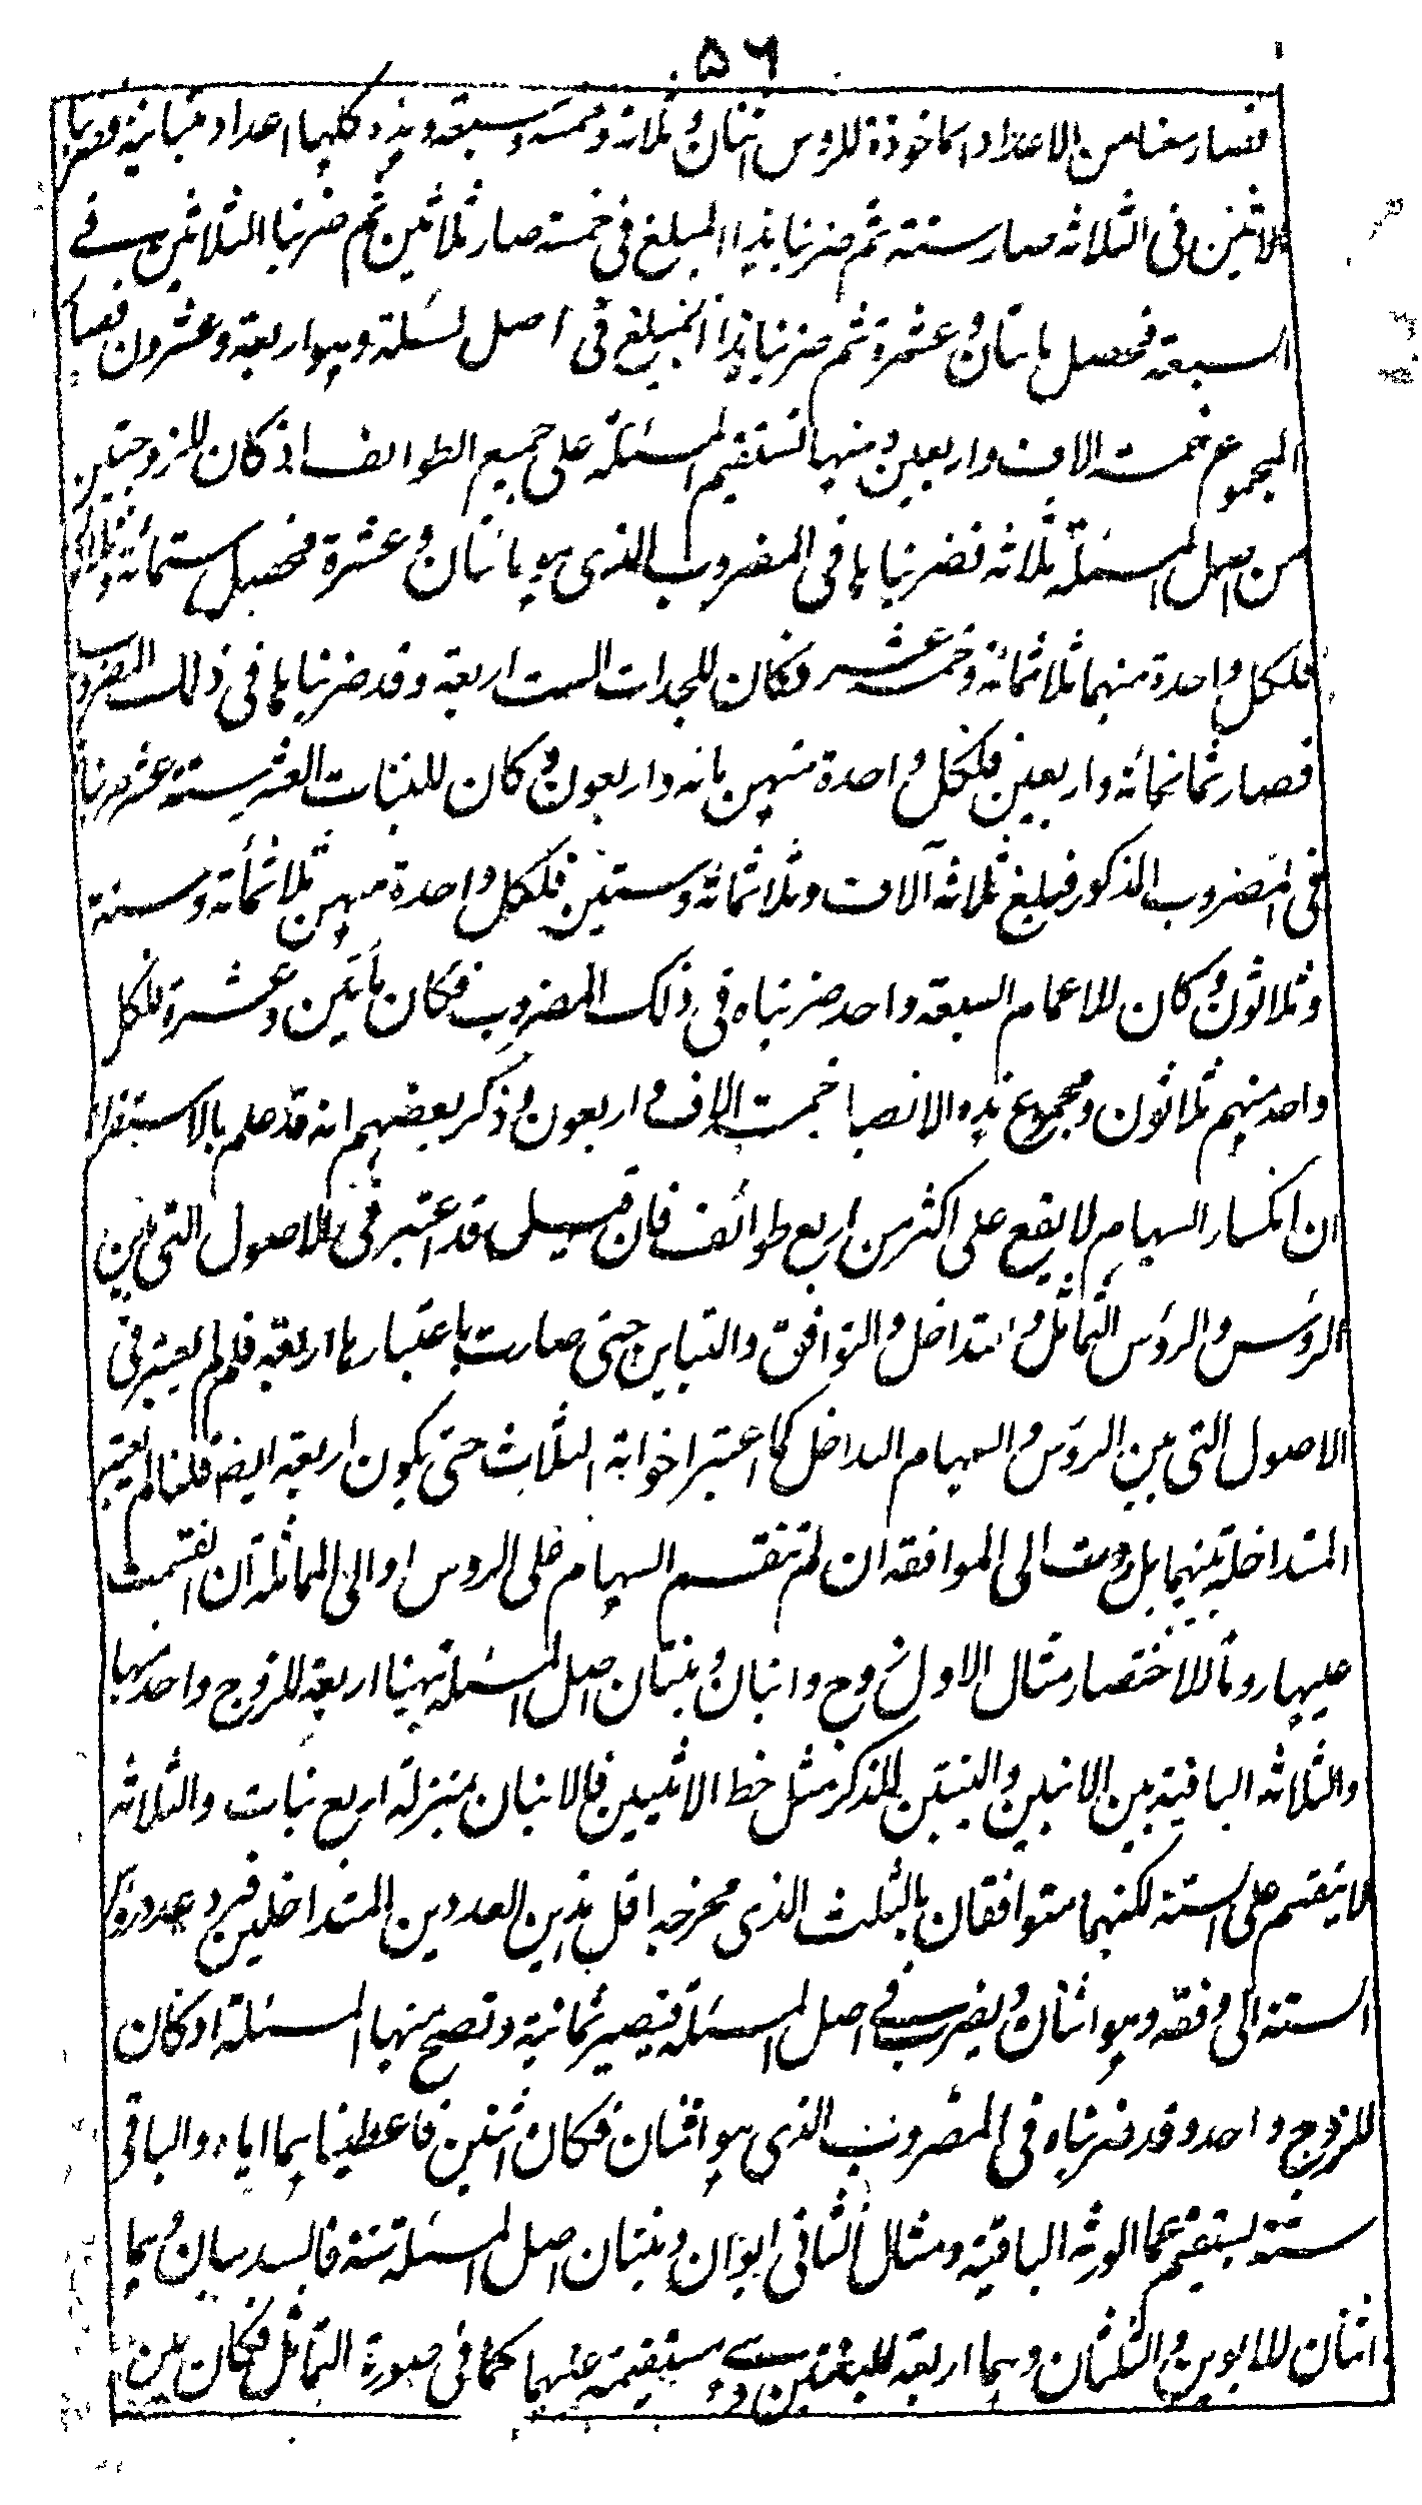 ۵۶
فصار معنا من الاعداد الماخوذة للروس اثنان وثلاثة وخمسة وسبعة وهذه كلها اعداد متباينة فضربنا
الاثنين فى الثلاثة صار ستة ثم ضربنا هذا المبلغ فى خمسة صار ثلاثين ثم ضربنا الثلاثين فے
السبعة فحصل مائتان وعشرة ثم ضربنا هذا المبلغ فى اصل المسئلة وهو اربعة وعشرون فصار
المجموع خمسة الاف واربعين ومنها تستقيم المسئلة على جميع الطوائف اذ كان للزوجتين
من اصل المسئلة ثلاثة فضربناها فى المضروب الذى هو مائتان وعشرة فحصل ستمائة وثلاثون
فلكل واحدة منهما ثلاثمائة وخمسة عشر وكان للجدات الست اربعة وقد ضربناها فى ذلك المضروب
فصار ثمانمائة واربعين فلكل واحدة منهن مائة واربعون وكان للبنات العشر ستة عشر ضربناها
فى المضروب المذكور فبلغ ثلاثة آلاف وثلاثمائة وستين فلكل واحدة منهن ثلاثمائة وستة
وثلاثون وكان للاعمام السبعة واحد ضربناه فى ذلك المضروب فكان مأتين وعشرة فلكل
واحد منهم ثلاثون ومجموع هذه الانصبا خمسة الاف واربعون وذكر بعضهم انه قد علم بالاستقراء
ان انكسار السهام لا يقع على اكثر من اربع طوائف فان قيل قد اعتبر فى الاصول التى بين
الروس والروس التماثل والتداخل والتوافق والتباين حتى صارت باعتبارها اربعة فلم لم يعتبر فى
الاصول التى بين الروس والسهام التداخل كما اعتبر اخواته الثلاث حتى يكون اربعة ايضا قلنا لم يعتبر
المتداخلة بينهما بل ردت الى الموافقة ان لم تنقسم السهام على الروس او الى المماثلة ان انقسمت
عليها روما للاختصار مثال الاول زوج وابنان وبنتان اصل المسئلة ههنا اربعة للزوج واحد منها
والثلاثة الباقية بين الابنين والبنتين للذكر مثل حظ الانثيين فالابنان بمنزلة اربع بنات والثلاثة
لا ينقسم على الستة لكنهما متوافقان بالثلث الذى مخرجه اقل هذين العددين المتداخلين فيرد عدد روس
الستة الى وفقه وهو اثنان ويضرب فے اصل المسئلة فيصير ثمانية وتصح منها المسئلة اذ كان
للزوج واحد وقد ضربناه فى المضروب الذى هو اثنان فكان اثنين فاعطيناهما اياه والباقى
ستة يستقيم على الورثة الباقية ومثال الثانى ابوان وبنتان اصل المسئلة ستة فالسدسان وهما
اثنان للابوين والثلثان وهما اربعة للبنتين وهے مستقيمة عليهما كما فى صورة التماثل فكان بين